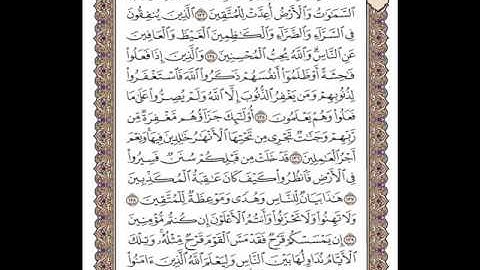 السَّمَٰوَٰتُ وَالْأَرْضُ أُعِدَّتْ لِلْمُتَّقِينَ ١٣٣ الَّذِينَ يُنفِقُونَ
فِي السَّرَّاءِ وَالضَّرَّاءِ وَالْكَٰظِمِينَ الْغَيْظَ وَالْعَافِينَ
عَنِ النَّاسِ وَاللَّهُ يُحِبُّ الْمُحْسِنِينَ ١٣٤ وَالَّذِينَ إِذَا فَعَلُوا
فَٰحِشَةً أَوْ ظَلَمُوا أَنفُسَهُمْ ذَكَرُوا اللَّهَ فَاسْتَغْفَرُوا
لِذُنُوبِهِمْ وَمَن يَغْفِرُ الذُّنُوبَ إِلَّا اللَّهُ وَلَمْ يُصِرُّوا عَلَىٰ مَا
فَعَلُوا وَهُمْ يَعْلَمُونَ ١٣٥ أُولَٰئِكَ جَزَاؤُهُم مَّغْفِرَةٌ مِّن
رَّبِّهِمْ وَجَنَّٰتٌ تَجْرِي مِن تَحْتِهَا الْأَنْهَٰرُ خَٰلِدِينَ فِيهَا وَنِعْمَ
أَجْرُ الْعَٰمِلِينَ ١٣٦ قَدْ خَلَتْ مِن قَبْلِكُمْ سُنَنٌ فَسِيرُوا
فِي الْأَرْضِ فَانظُرُوا كَيْفَ كَانَ عَٰقِبَةُ الْمُكَذِّبِينَ
١٣٧ هَٰذَا بَيَانٌ لِّلنَّاسِ وَهُدًى وَمَوْعِظَةٌ لِّلْمُتَّقِينَ ١٣٨
وَلَا تَهِنُوا وَلَا تَحْزَنُوا وَأَنتُمُ الْأَعْلَوْنَ إِن كُنتُم مُّؤْمِنِينَ
١٣٩ إِن يَمْسَسْكُمْ قَرْحٌ فَقَدْ مَسَّ الْقَوْمَ قَرْحٌ مِّثْلُهُ وَتِلْكَ
الْأَيَّامُ نُدَاوِلُهَا بَيْنَ النَّاسِ وَلِيَعْلَمَ اللَّهُ الَّذِينَ ءَامَنُوا